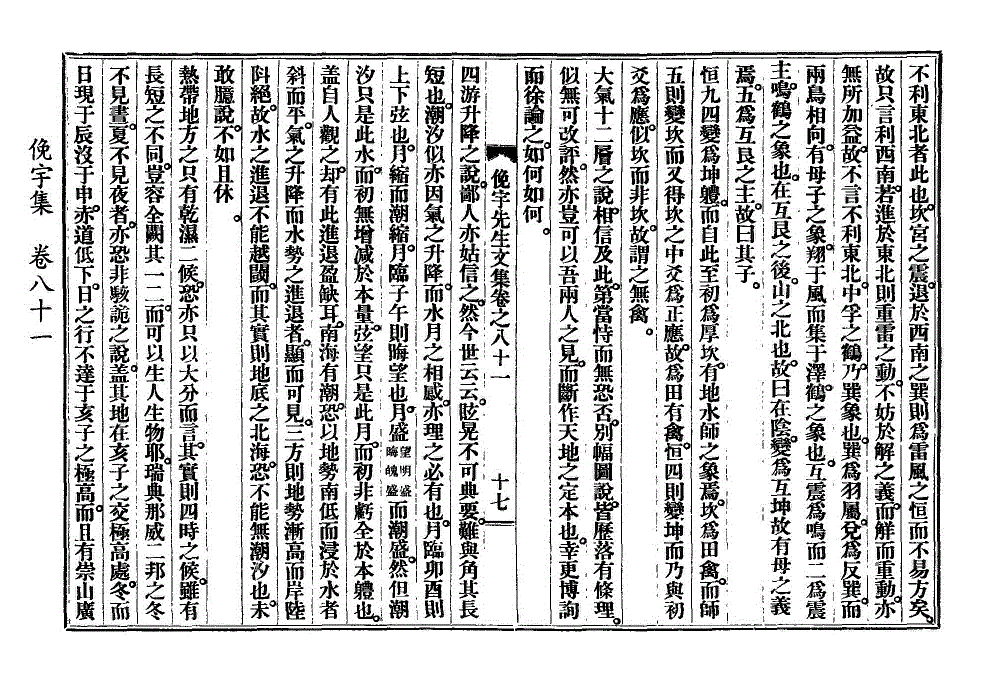 不利東北者此也坎宮之震退於西南之巽則爲雷風之恒而不易方矣
故只言利西南若進於東北則重雷之動不妨於解之義而解而重動亦
無所加益故不言不利東北中孚之鶴乃巽象也巽爲羽屬兌爲反巽而
兩鳥相向有母子之象翔于風而集于澤鶴之象也互震爲鳴而二爲震
主鳴鶴之象也在互艮之後山之北也故曰在陰變爲互坤故有母之義
焉五爲互艮之主故曰其子
恒九四變爲坤軆而自此至初爲厚坎有地水師之象焉坎爲田禽而師
五則變坎而又得坎之中爻爲正應故爲田有禽恒四則變坤而乃與初
爻爲應似坎而非坎故謂之無禽
大氣十二層之說相信及此第當恃而無恐否別幅圖說皆歷落有條理
似無可改評然亦豈可以吾兩人之見而斷作天地之定本也幸更博詢
而徐論之如何如何
俛宇先生文集卷之八十一　十七
四游升降之說鄙人亦姑信之然今世云云眩晃不可典要難與角其長
短也潮汐似亦因氣之升降而水月之相感亦理之必有也月臨卯酉則
上下弦也月縮而潮縮月臨子午則晦望也月盛望明盛晦魄盛而潮盛然但潮
汐只是此水而初無增减於本量弦望只是此月而初非虧全於本軆也
盖自人觀之却有此進退盈缺耳南海有潮恐以地勢南低而浸於水者
斜而平氣之升降而水勢之進退者顯而可見三方則地勢漸高而岸陸
斗絕故水之進退不能越閾而其實則地底之北海恐不能無潮汐也未
敢臆說不如且休
熱帶地方之只有乾濕二候恐亦只以大分而言其實則四時之候雖有
長短之不同豈容全闕其一二而可以生人生物耶瑞典那威二邦之冬
不見晝夏不見夜者亦恐非駭詭之說盖其地在亥子之交極高處冬而
日現于辰沒于申亦道低下日之行不達于亥子之極高而且有崇山廣
俛宇集　卷八十一